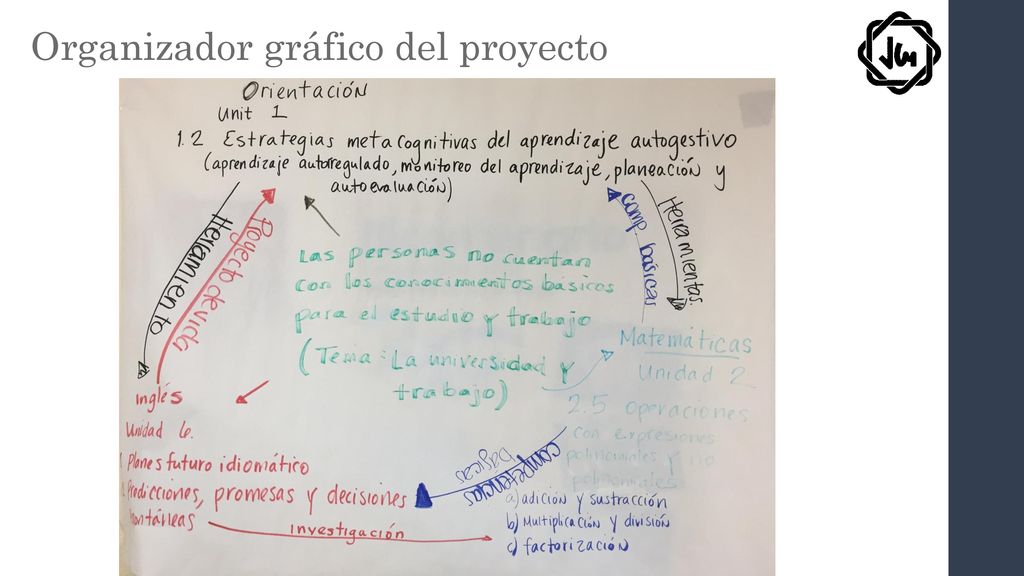 Organizador gráfico del proyecto
Orientación
Unit 1
1.2 Estrategias metacognitivas del aprendizaje autogestivo
(aprendizaje autorregulado, monitoreo del aprendizaje, planeación y
autoevaluación)
Herramiento
Proyecto de vida
comp básicas
Herramientas
Las personas no cuentan
con los conocimientos básicos
para el estudio y trabajo
(Tema: La universidad y
trabajo)
Matemáticas
Unidad 2
2.5 operaciones
con expresiones
polinomiales y no
polinomiales
a) adición y sustracción
b) Multiplicación y división
c) factorización
competencias
básicas
Inglés
Unidad 6.
1. Planes futuro idiomático
Predicciones, promesas y decisiones
investigación